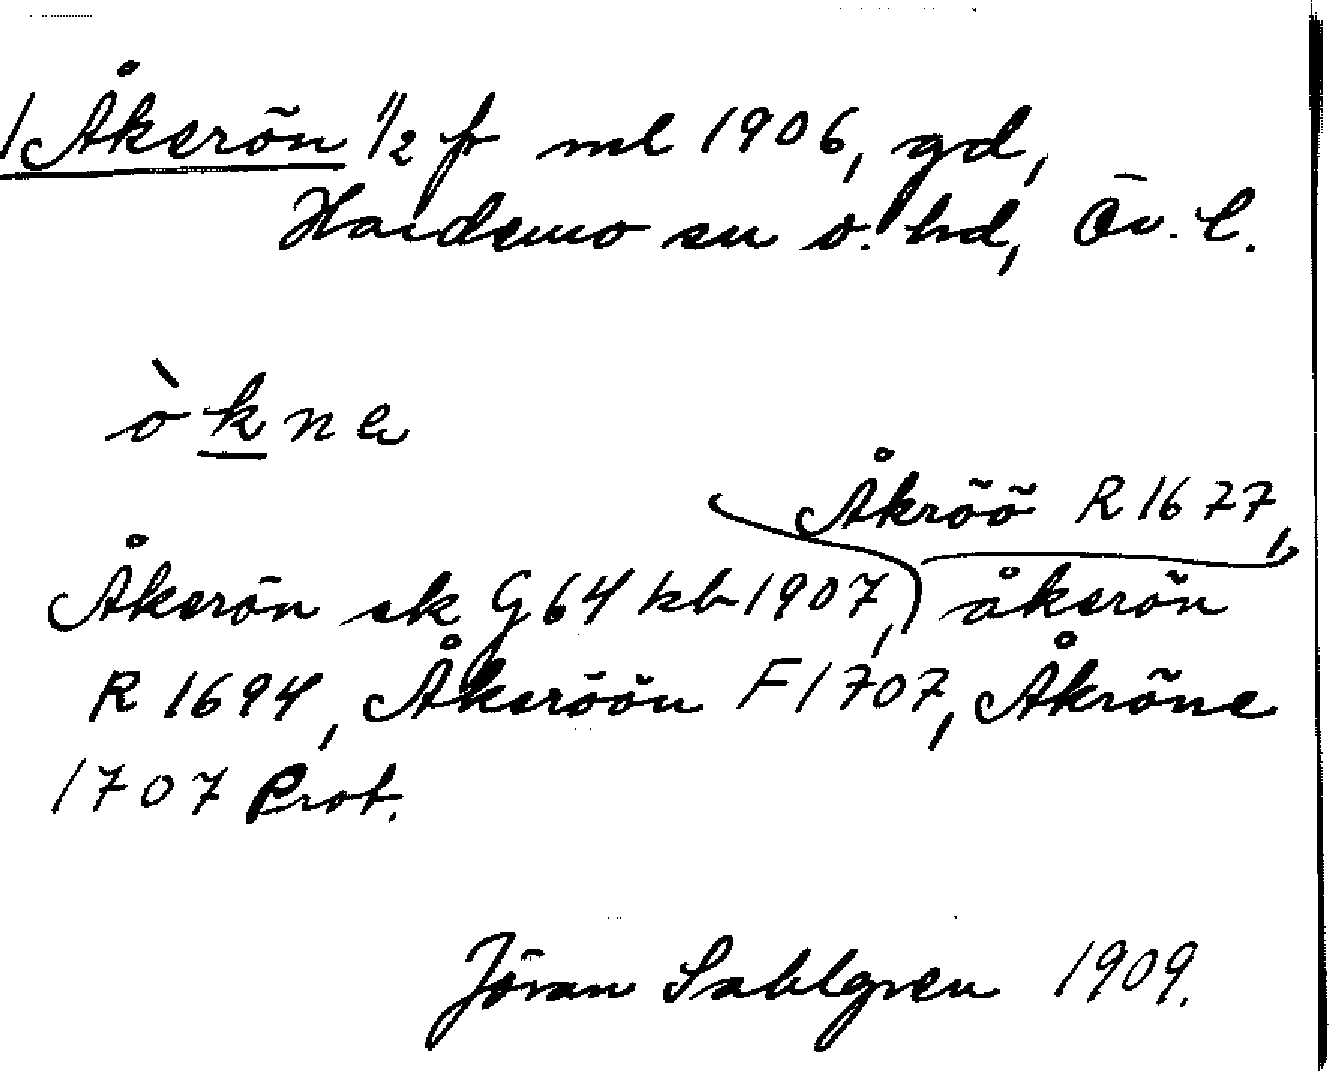 Åkerön 1/2 fr ml 1906, gd,
Hardemo sn o. hd, Öv. l.
òkne
Åkröö R 1677,
Åkerön sk G 64 kb 1907, åkerön
R 1694, Åkeröön F 1707, Åkröne
1707 Prot.
Jöran Sahlgren 1909.